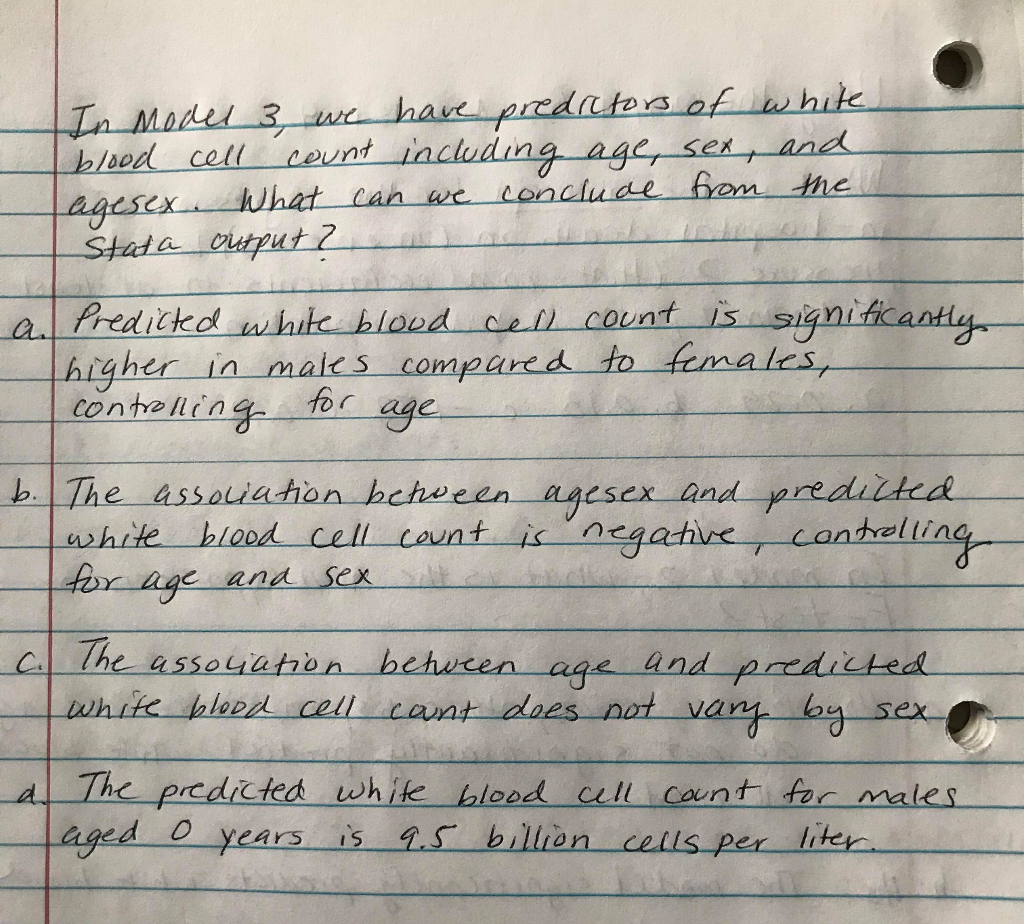 In Model 3, we have predictors of white
blood cell count including age, sex, and
agesex. What can we conclude from the
Stata output?
a. Predicted white blood cell count is significantly
higher in males compared to females,
controlling for age
b. The association between agesex and predicted
white blood cell count is negative, controlling
for age and sex
c. The association between age and predicted
white blood cell count does not vary by sex
d. The predicted white blood cell count for males
aged 0 years is 9.5 billion cells per liter.